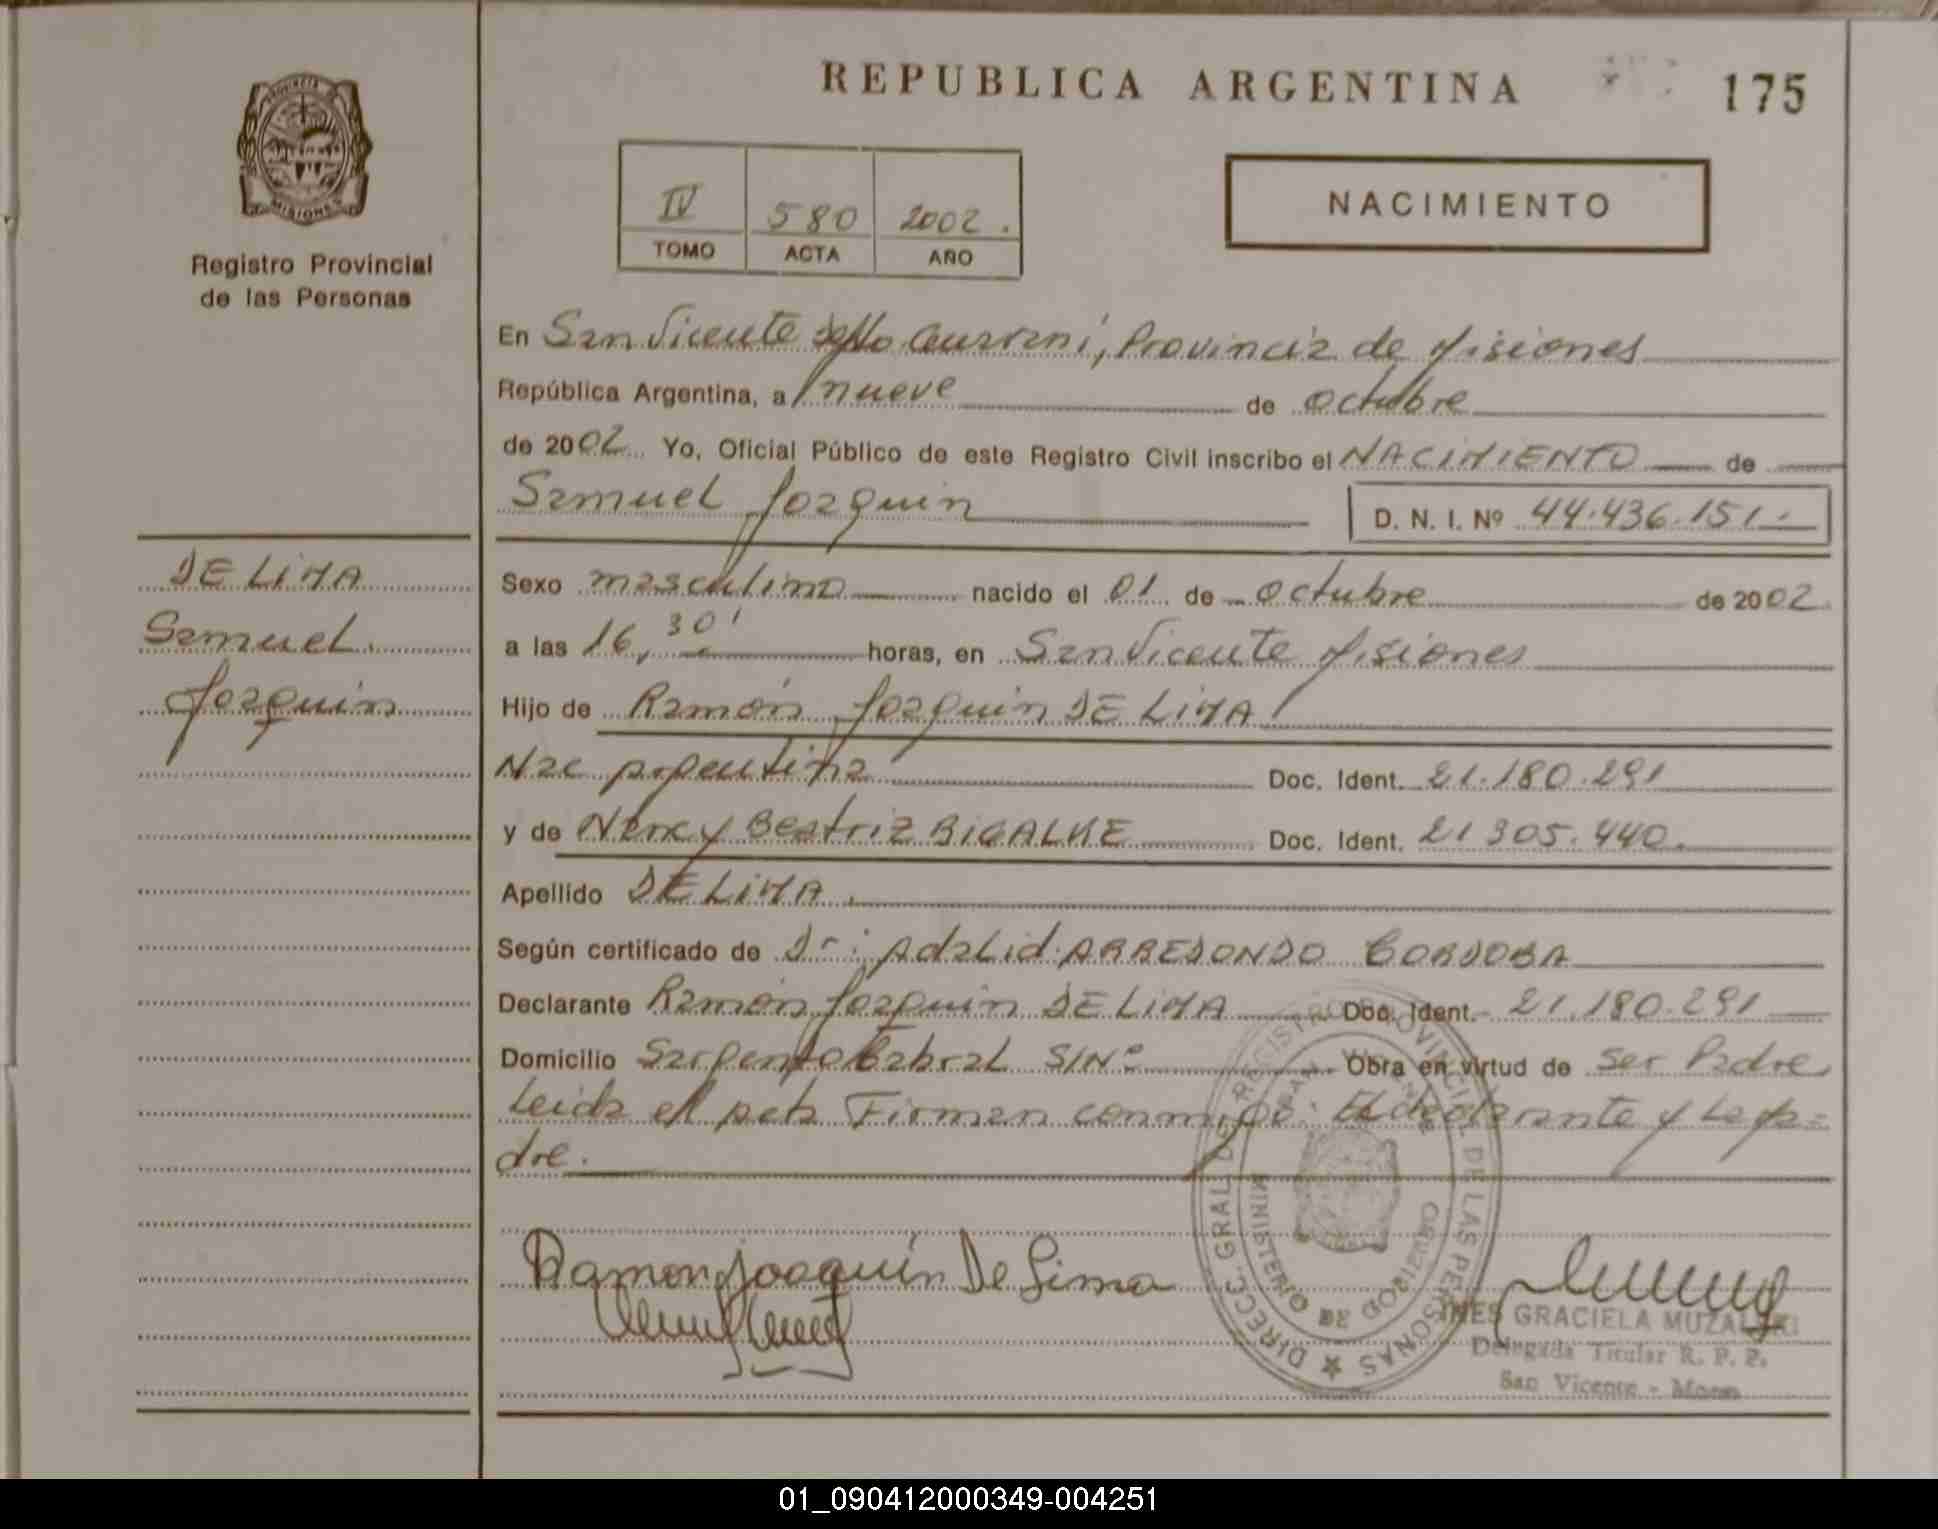 REPUBLICA ARGENTINA
175
PROVINCIA
MISIONES
Registro Provincial
de las Personas
IV 580 2002.
TOMO ACTA AÑO
NACIMIENTO
En San Vicente Dpto Guaraní, Provincia de Misiones
República Argentina, a nueve de octubre
de 2002 Yo, Oficial Público de este Registro Civil inscribo el NACIMIENTO de
Samuel Joaquin D. N. I. Nº 44.436.151.-
DE LIMA
Samuel
Joaquin
Sexo masculino nacido el 01 de octubre de 2002
a las 16,30' horas, en San Vicente Misiones
Hijo de Ramón Joaquin DE LIMA
Nac Argentina Doc. Ident. 21.180.291
y de Nancy Beatriz BIGALKE Doc. Ident. 21305.440.
Apellido DE LIMA.
Según certificado de Dr: Adalid ARREDONDO CORDOBA
Declarante Ramón Joaquin DE LIMA Doc. Ident. 21.180.291
Domicilio Sargento Cabral S/Nº Obra en virtud de ser Padre
Leida el acta Firman conmigo: El declarante y La ma=
dre.
Ramon Joaquín De Lima
DIRECC. GRAL. DEL REGISTRO PROVINCIAL DE LAS PERSONAS
MINISTERIO DE GOBIERNO
SAN VICENTE
INES GRACIELA
Delegada Titular R. P. P.
San Vicente - Mnes
01_090412000349-004251